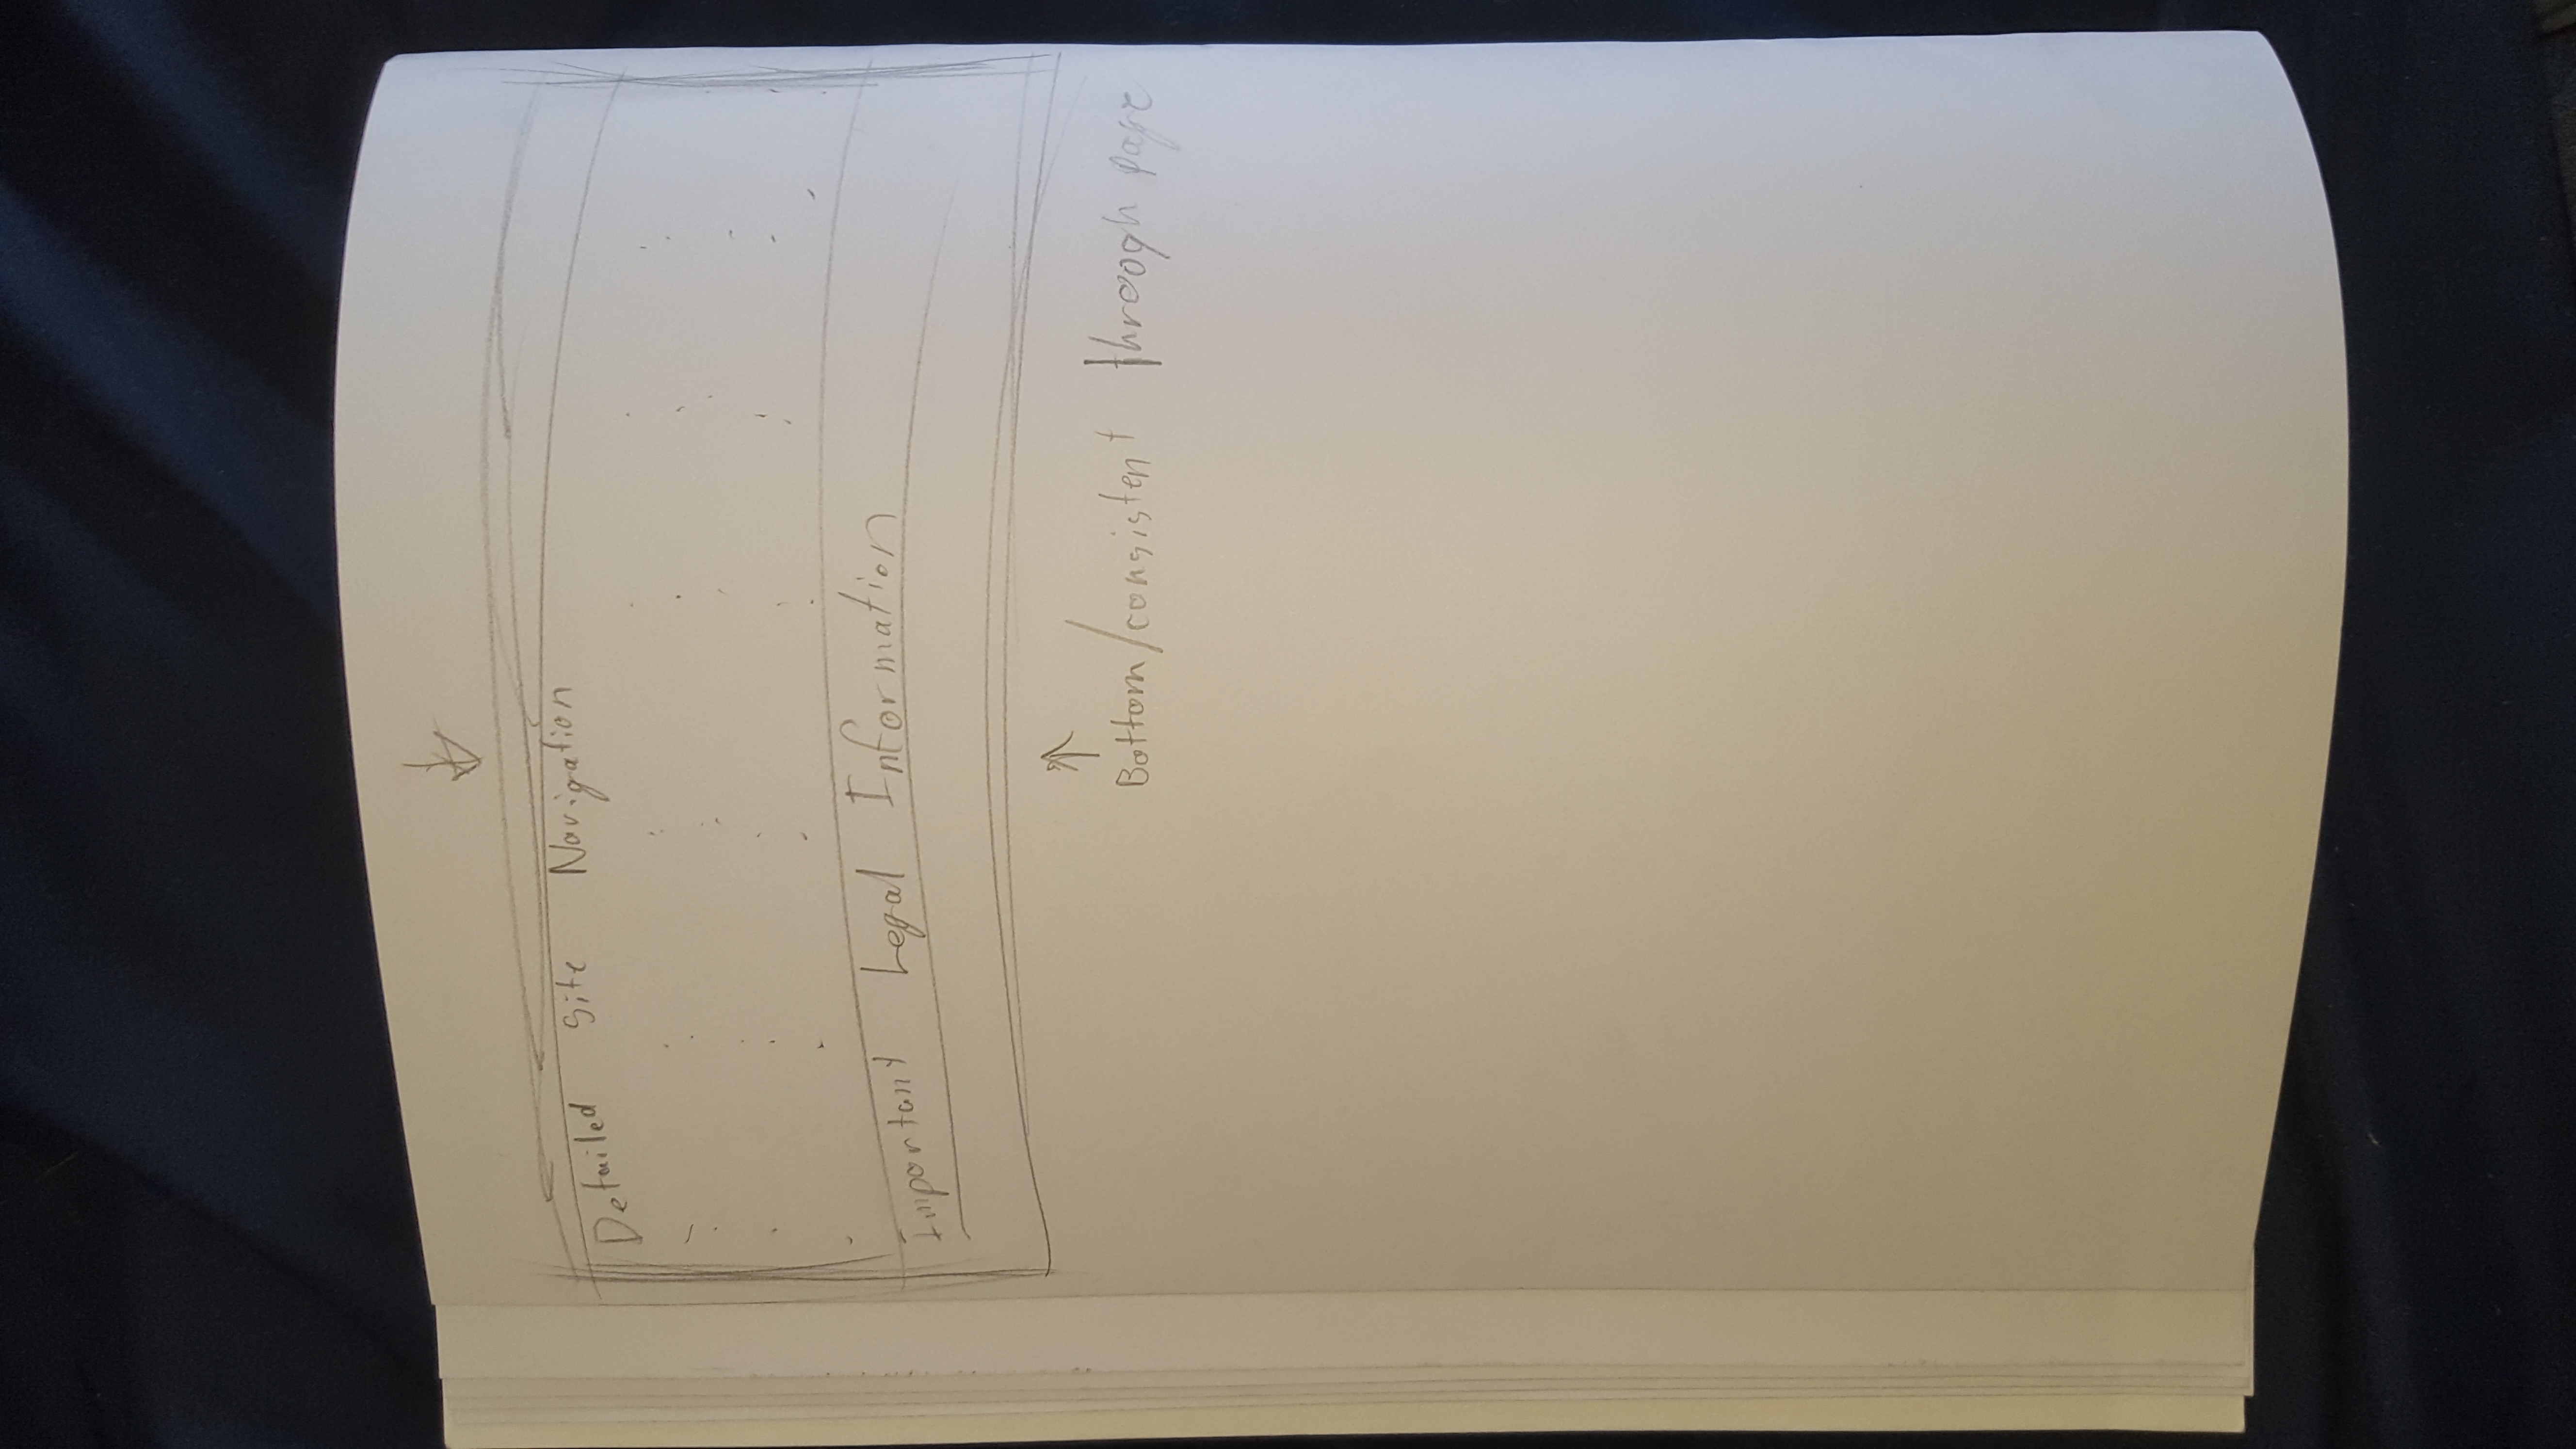 Detailed Site Navigation
Important Legal Information
Bottom/consistent through page